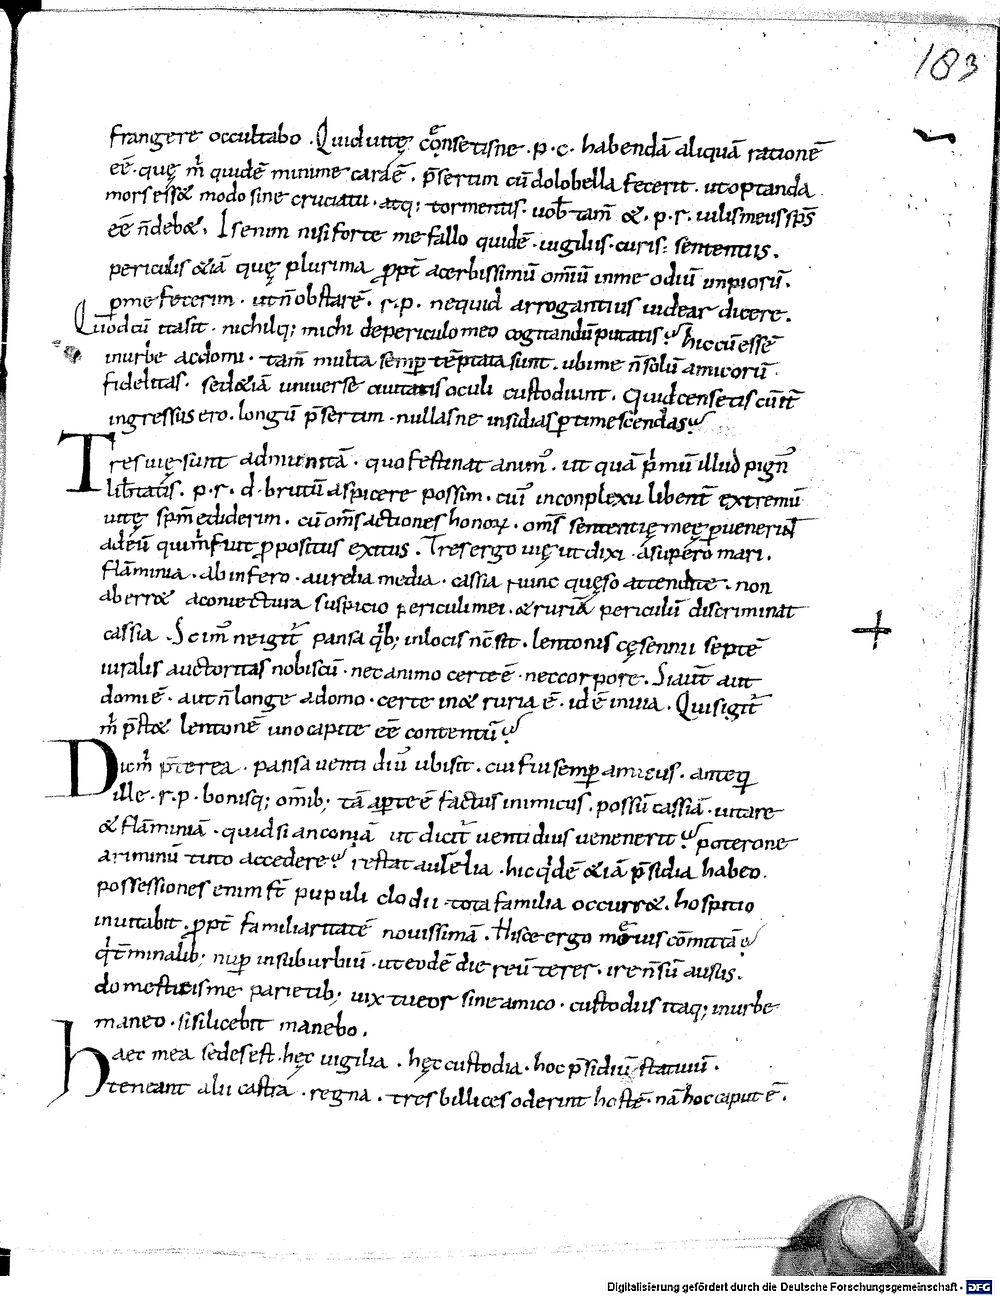 183
frangere occultabo . Quid uitę cẽnsetisne . p . c . habendā aliquā rationē
eē . quę m̄ quidē minime cara ē . p̄sertim cū dolobella fecerit . ut optanda
mors ess& modo sine cruciatu . atq; tormentis . uob̄ tam̄ & . p . r . uilis meus sp̄s
eē n̄ deb& . Is enim nisi forte me fallo quidē . uigiliis . curis; sententiis .
periculis &iā quę plurima ꝓpt̄ acerbissimū om̄iū in me odiū impiorū .
ꝑ me fecerim . ut n̄ obstarē . r . p . nequid arrogantius uidear dicere .
Quod cū ita sit . nichilq; michi de periculo meo cogitandū putatis hic cū essē
in urbe ac domi . tam̄ multa semꝑ tēptata sunt . ubi me n̄ solū amicorū
fidelitas . sed &iā universe ciuitatis oculi custodiunt . Quid censetis cū it̄
ingressus ero . longū p̄sertim . nullas ne insidias ꝑtimescendas
Tres uię sunt ad munitā . quo festinat anim̄ . ut quā p̄mū illud pign̄
lib̄tatis . p . r . d . brutū aspicere possim . cuī in conplexu libent̄ extremū
uitę sp̄m ediderim . cū om̄s actiones honoꝝ . om̄s sententię meę ꝑuenerūt
ad eū qui m̄ fuit ꝓpositus exitus . Tres ergo uię ut dixi . a supero mari .
flāminia . ab infero . aurelia media . cassia nunc quęso attendite . non
aberr& a coniectura suspicio periculi mei . &ruriā periculū discriminat
cassia . Scim̄ ne igit̄ pansa q̄b; in locis nc̄ sit . lentonis cęsennii septē
uiralis auctoritas nobiscū . nec animo certe ē . nec corpore . Si aut̄ aut
domi ē . aut n̄ longe a domo . certe in &ruria ē . id ē in uia . Quis igit̄
m̄ p̄st& lentonē uno capite eē contentū
Dic m̄ p̄terea . pansa uenti diū ubi sit . cui fui semꝑ amicus . anteq̄
ille . r . p . bonisq; om̄ib; tā aꝑte ē factus inimicus . possū cassiā . uitare
& flāminiā . quid si anconiā ut dicit̄ uentidius uenerit poterone
ariminū tuto accedere restat aurelia . hic q̄dē &iā p̄sidia habeo .
possessiones enim s̄t pupuli clodii tota familia occurr& . hospitio
inuitabit . ꝓpt̄ familiaritatē novissimā . Hisce ergo me uiis cōmittā
q̄ t̄minalib; nuꝑ in suburbiū . ut eodē die reūterer . ire n̄ sū ausus .
domesticis me parietib; uix tueor sine amico . custodiis itaq; in urbe
maneo . si si licebit manebo .
Haec mea sedes est . hęc uigilia . hęc custodia . hoc p̄sidiū statiuū .
teneant alii castra . regna . tres billices oderint hostē . nā hoc caput ē .
Digitalisierung gefördert durch die Deutsche Forschungsgemeinschaft - DFG